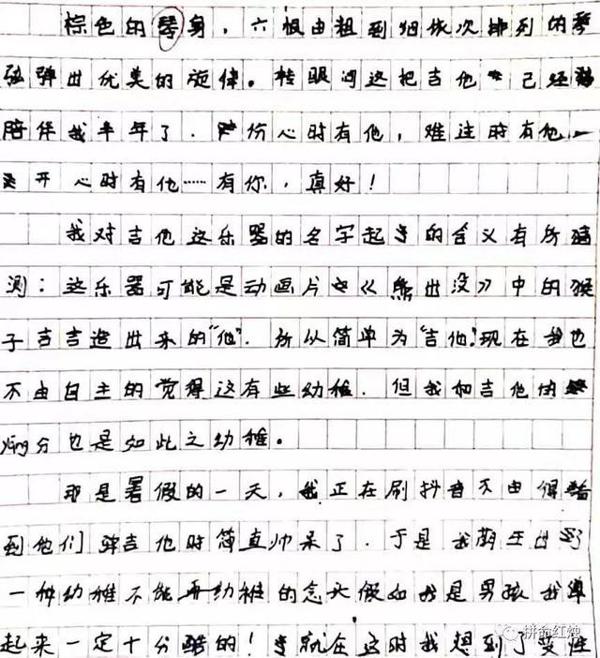 棕色的琴身，六根由粗到细依次排列的琴
弦弹出优美的旋律。转眼间这把吉他已经
陪伴我半年了．伤心时有他，难过时有他
开心时有他……有你，真好！
我对吉他这乐器的名字起的含义有所猜
测：这乐器可能是动画片《熊出没》中的猴
子吉吉造出来的"他"．所以简单为"吉他"．现在我也
不由自主的觉得这有些幼稚．但我和吉他的
缘分也是如此之幼稚。
那是暑假的一天，我正在刷抖音不由得
到他们弹吉他时简直帅呆了．于是我萌生出了
一种幼稚不能再幼稚的念头假如我是男孩我弹
起来一定十分酷的！就在这时我想到了变性
拼命红烛